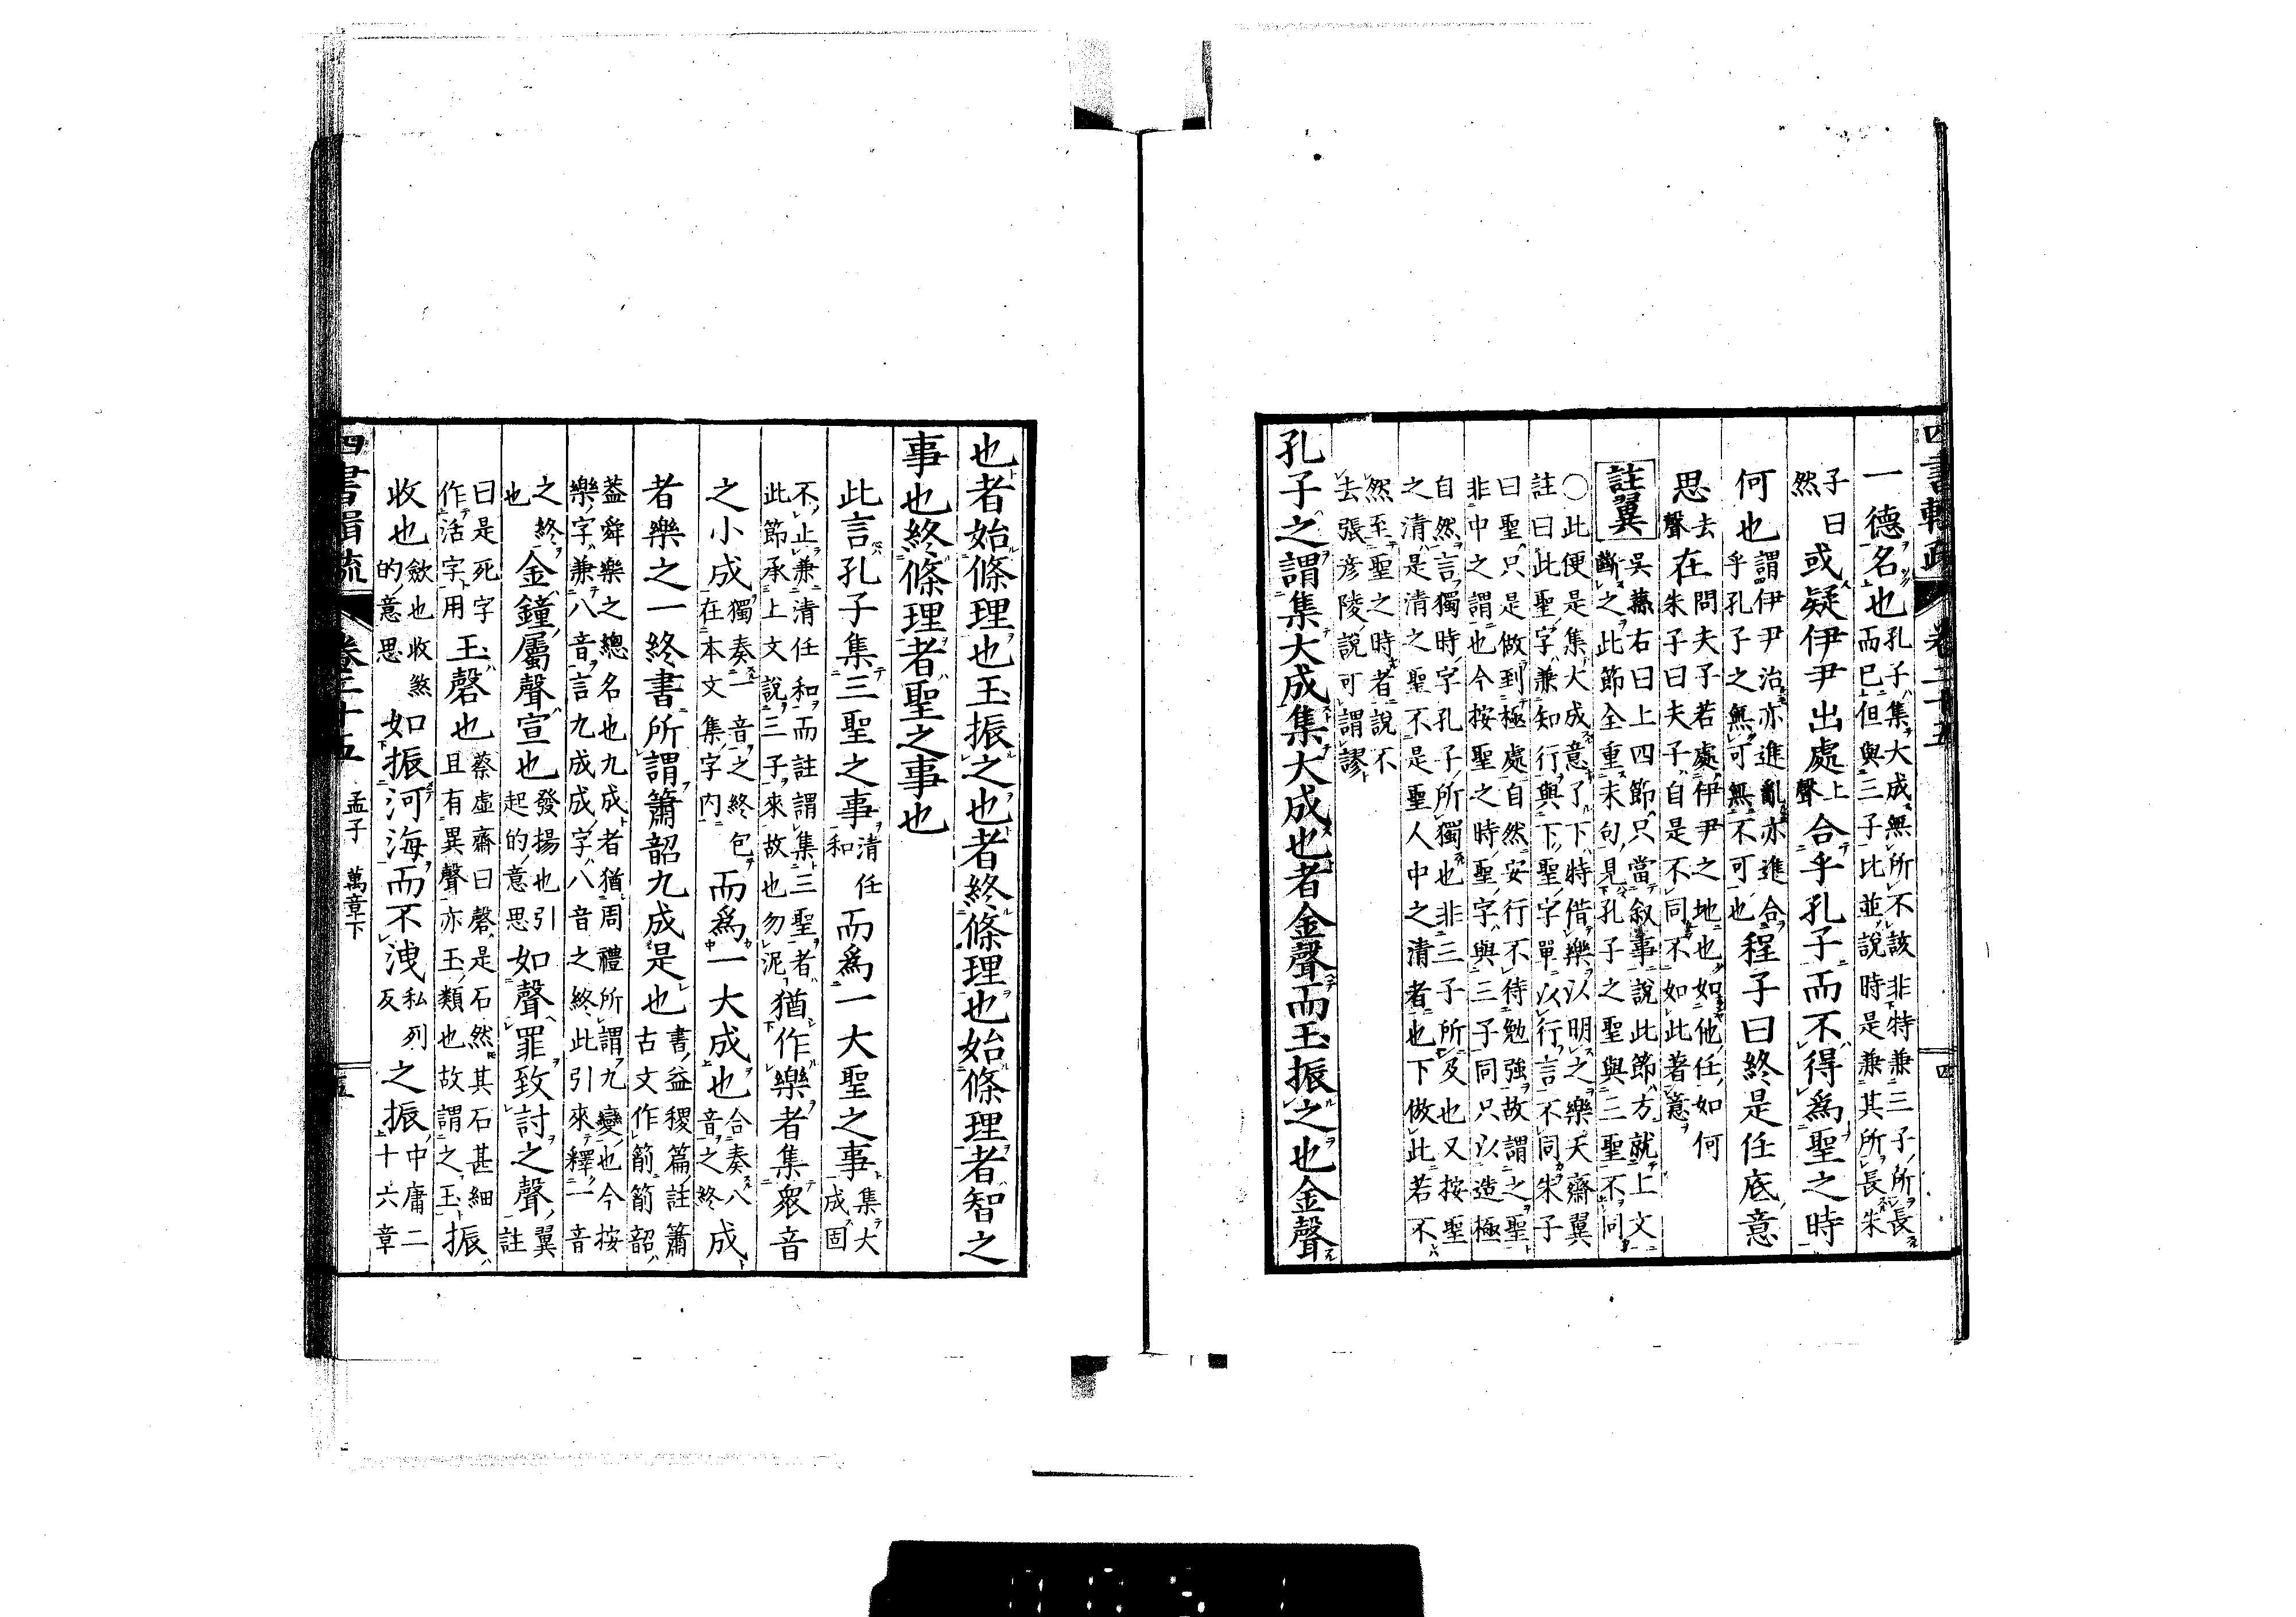 四書輯疏 卷二十五 四
一德名也孔子集大成無所不該非特兼三子所長
而已但與三子比並說時是兼其所長朱
子曰
然或疑伊尹出處上
聲合乎孔子而不得爲聖之時
何也謂伊尹治亦進亂亦進合
乎孔子之無可無不可也程子曰終是任底意
思去
聲在問夫子若處伊尹之地也如他任如何
朱子曰夫子自是不同不如此著意
註翼吳蓀右曰上四節只當叙事說此節方就上文
斷之此節全重末句見孔子之聖與三聖不同
〇此便是集大成意了下特借樂以明之樂天齋翼
註曰此聖字兼知行與下聖字單以行言不同朱子
曰聖只是做到極處自然安行不待勉強故謂之聖
非中之謂也今按聖之時聖字與三子同只以造極
自然言獨時字孔子所獨也非三子所及也又按聖
之清是清之聖不是聖人中之清者也下做此若不
然至聖之時者說不
去張彦陵說可謂謬
孔子之謂集大成集大成也者金聲而玉振之也金聲
也者始條理也玉振之也者終條理也始條理者智之
事也終條理者聖之事也
此言孔子集三聖之事清任
和而爲一大聖之事集大
成固
不止兼清任和而註謂集三聖者
此節承上文說三子來故也勿泥猶作樂者集衆音
之小成獨奏一音之終包
在本文集字內而爲一大成也合奏八
音之終成
者樂之一終書所謂簫韶九成是也書益稷篇註簫
古文作箾箾韶
蓋舜樂之總名也九成者猶周禮所謂九變也今按
樂字兼八音言九成成字八音之終此引來釋一音
之終
也金鐘屬聲宣也發揚也引
起的意思如聲罪致討之聲翼
註
曰是死字
作活字用玉磬也蔡虛齋曰磬是石然其石甚細
且有異聲亦玉類也故謂之玉振
收也斂也收煞
的意思如振河海而不洩私列
反之振中庸二
十六章
四書輯疏 卷二十五 孟子 萬章下 五